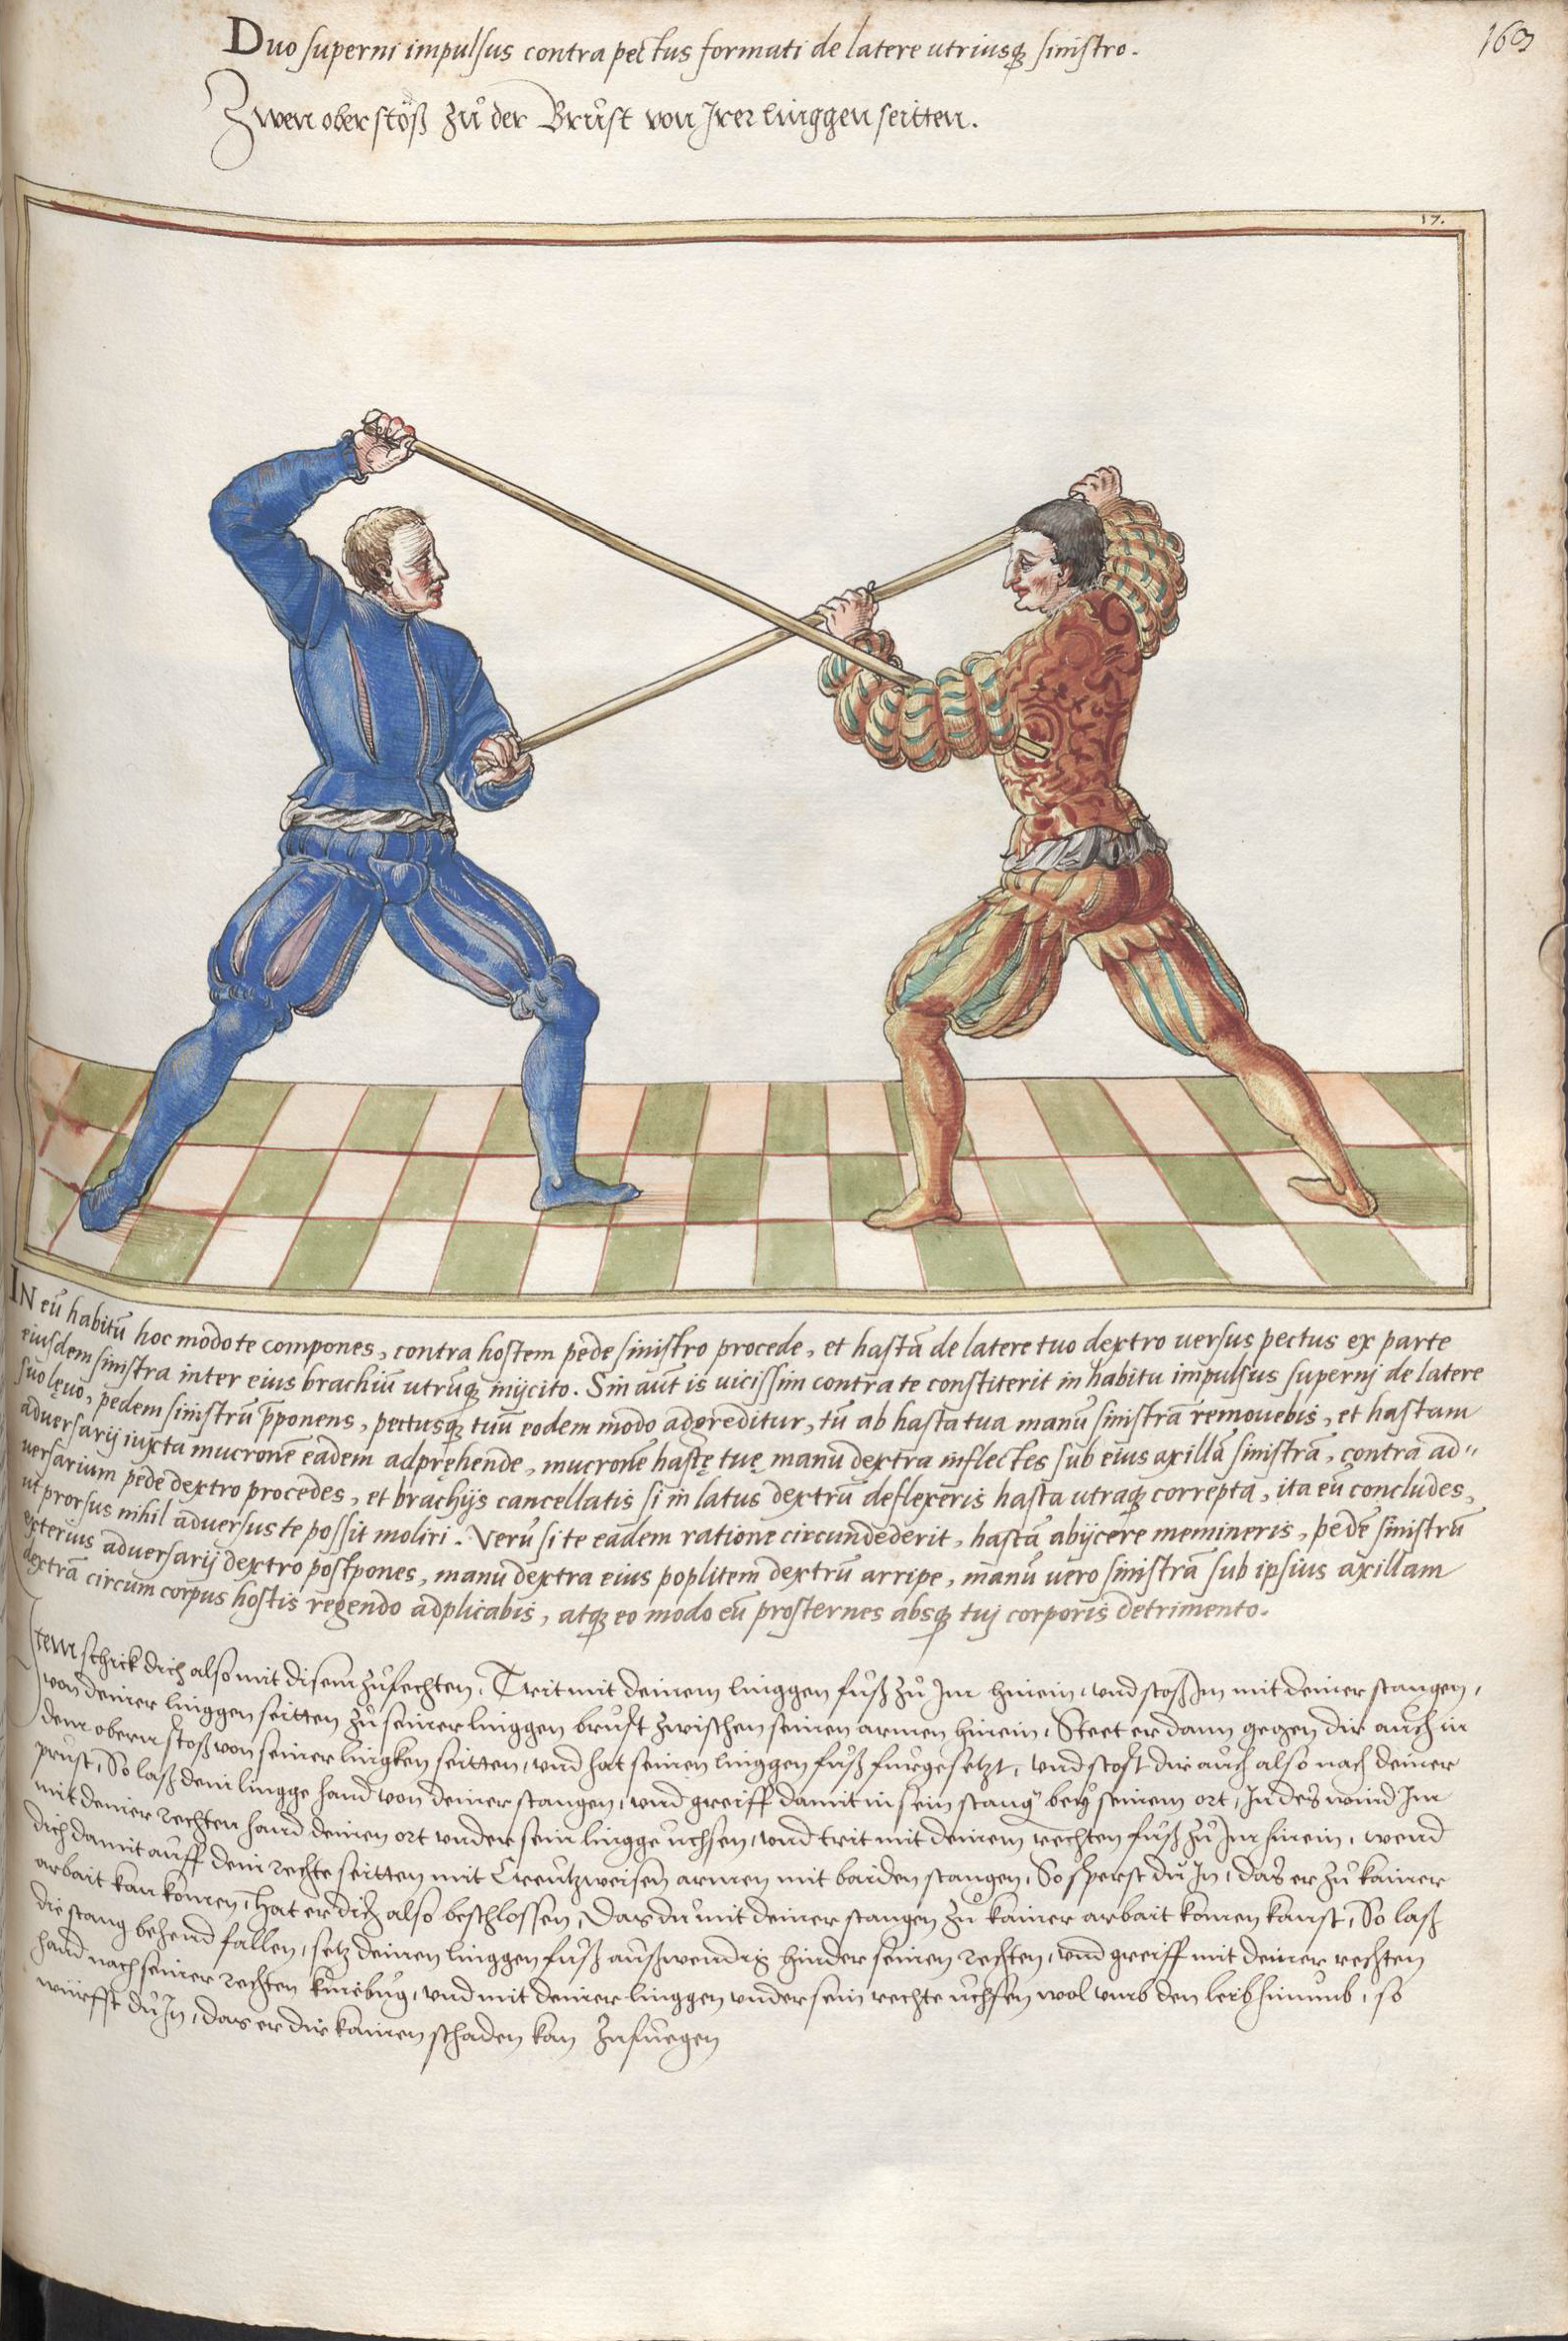 Duo superni impulsus contra pectus formati de latere utriusqꝫ sinistro.
163
Zwen ober stöß zů der Brůst von Irer linggen seitten.
17.
IN eū habitū hoc modo te compones, contra hostem pede sinistro procede, et hastā de latere tuo dextro versus pectus ex parte
eiusdem sinistra inter eius brachiū utrūqꝫ inijcito. Sin aūt is uicissim contra te constiterit in habitu impulsus supernj de latere
suo lęuo, pedem sinistrū p̄ponens, pectusqꝫ tuū eodem modo adgreditur, tū ab hasta tua manū sinistrā remouebis, et hastam
aduersarij iuxta mucronē eadem adpręhende, mucronē hastę tuę manu dextra inflectes sub eius axillā sinistrā, contra ad"
uersarium pede dextro procedes, et brachijs cancellatis si in latus dextrū deflexeris hasta utraqꝫ correpta, ita eū concludes,
ut prorsus nihil aduersus te possit moliri. Verū si te eadem ratione circundederit, hastā abijcere memineris, pedē sinistrū
exterius aduersarij dextro postpones, manu dextra eius poplitem dextrū arripe, manū uero sinistrā sub ipsius axillam
dextrā circum corpus hostis regendo adplicabis, atqꝫ eo modo eū prosternes absqꝫ tuj corporis detrimento.
Item schick dich also mit disem zůfechten, Trit mit deinem linggen fůß zů Im hinein, vnd stoß Im mit deiner stangen,
von deiner linggen seitten zů seiner linggen brůst zwischen seinen armen hinein, Steet er dann gegen dir auch in
dem obern stoß von seiner lingken seitten, vnd hat seinen linggen fůß fürgesetzt, vnd stost dir auch also nach deiner
prust, So laß dein lingge hand von deiner stangen, vnd greiff damit in sein stang bey seinem ort, In des wind Im
mit deiner rechten hand deinen ort vnder sein lingge üchsen, vnd trit mit deinem rechten fůß zů Im hinein, wend
dich damit auff dein rechte seitten mit Creutzweisen armen mit baiden stangen, So sperst du In, das er zů kainer
arbait kan komen, Hat er dich also beschlossen, Das du mit deiner stangen zů kainer arbait komen kanst, So laß
die stang behend fallen, setz deinen linggen fůß außwendig hinder seinen rechten, vnd greiff mit deiner rechten
hand nach seiner rechten kniebug, vnd mit deiner linggen vnder sein rechte üchsen wol vmb den leib hinumb, so
würffst du In, das er dir kainen schaden kan zufuegen